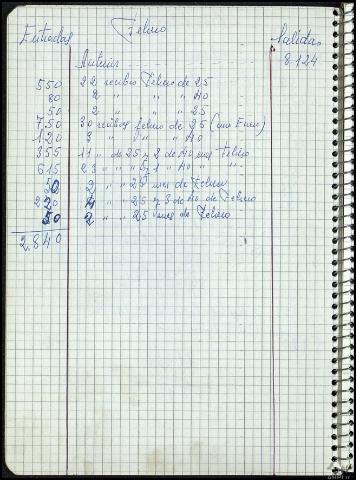 Entradas Febrero Salidas
Anterior 8.124
550 22 recibos Febrero de 25
80 2 " " " 40
50 2 " " " 25
750 30 recibos febrero de 25 (mes Enero)
120 3 " " " 40
355 11 " de 25 y 2 de 40 mes Febrero
615 23 " " " y 1 " 40 " "
50 2 " " 25 mes de Febrero
220 4 " " 25 y 3 de 40 de Febrero
50 2 " " 25 mes de Febrero
2.840